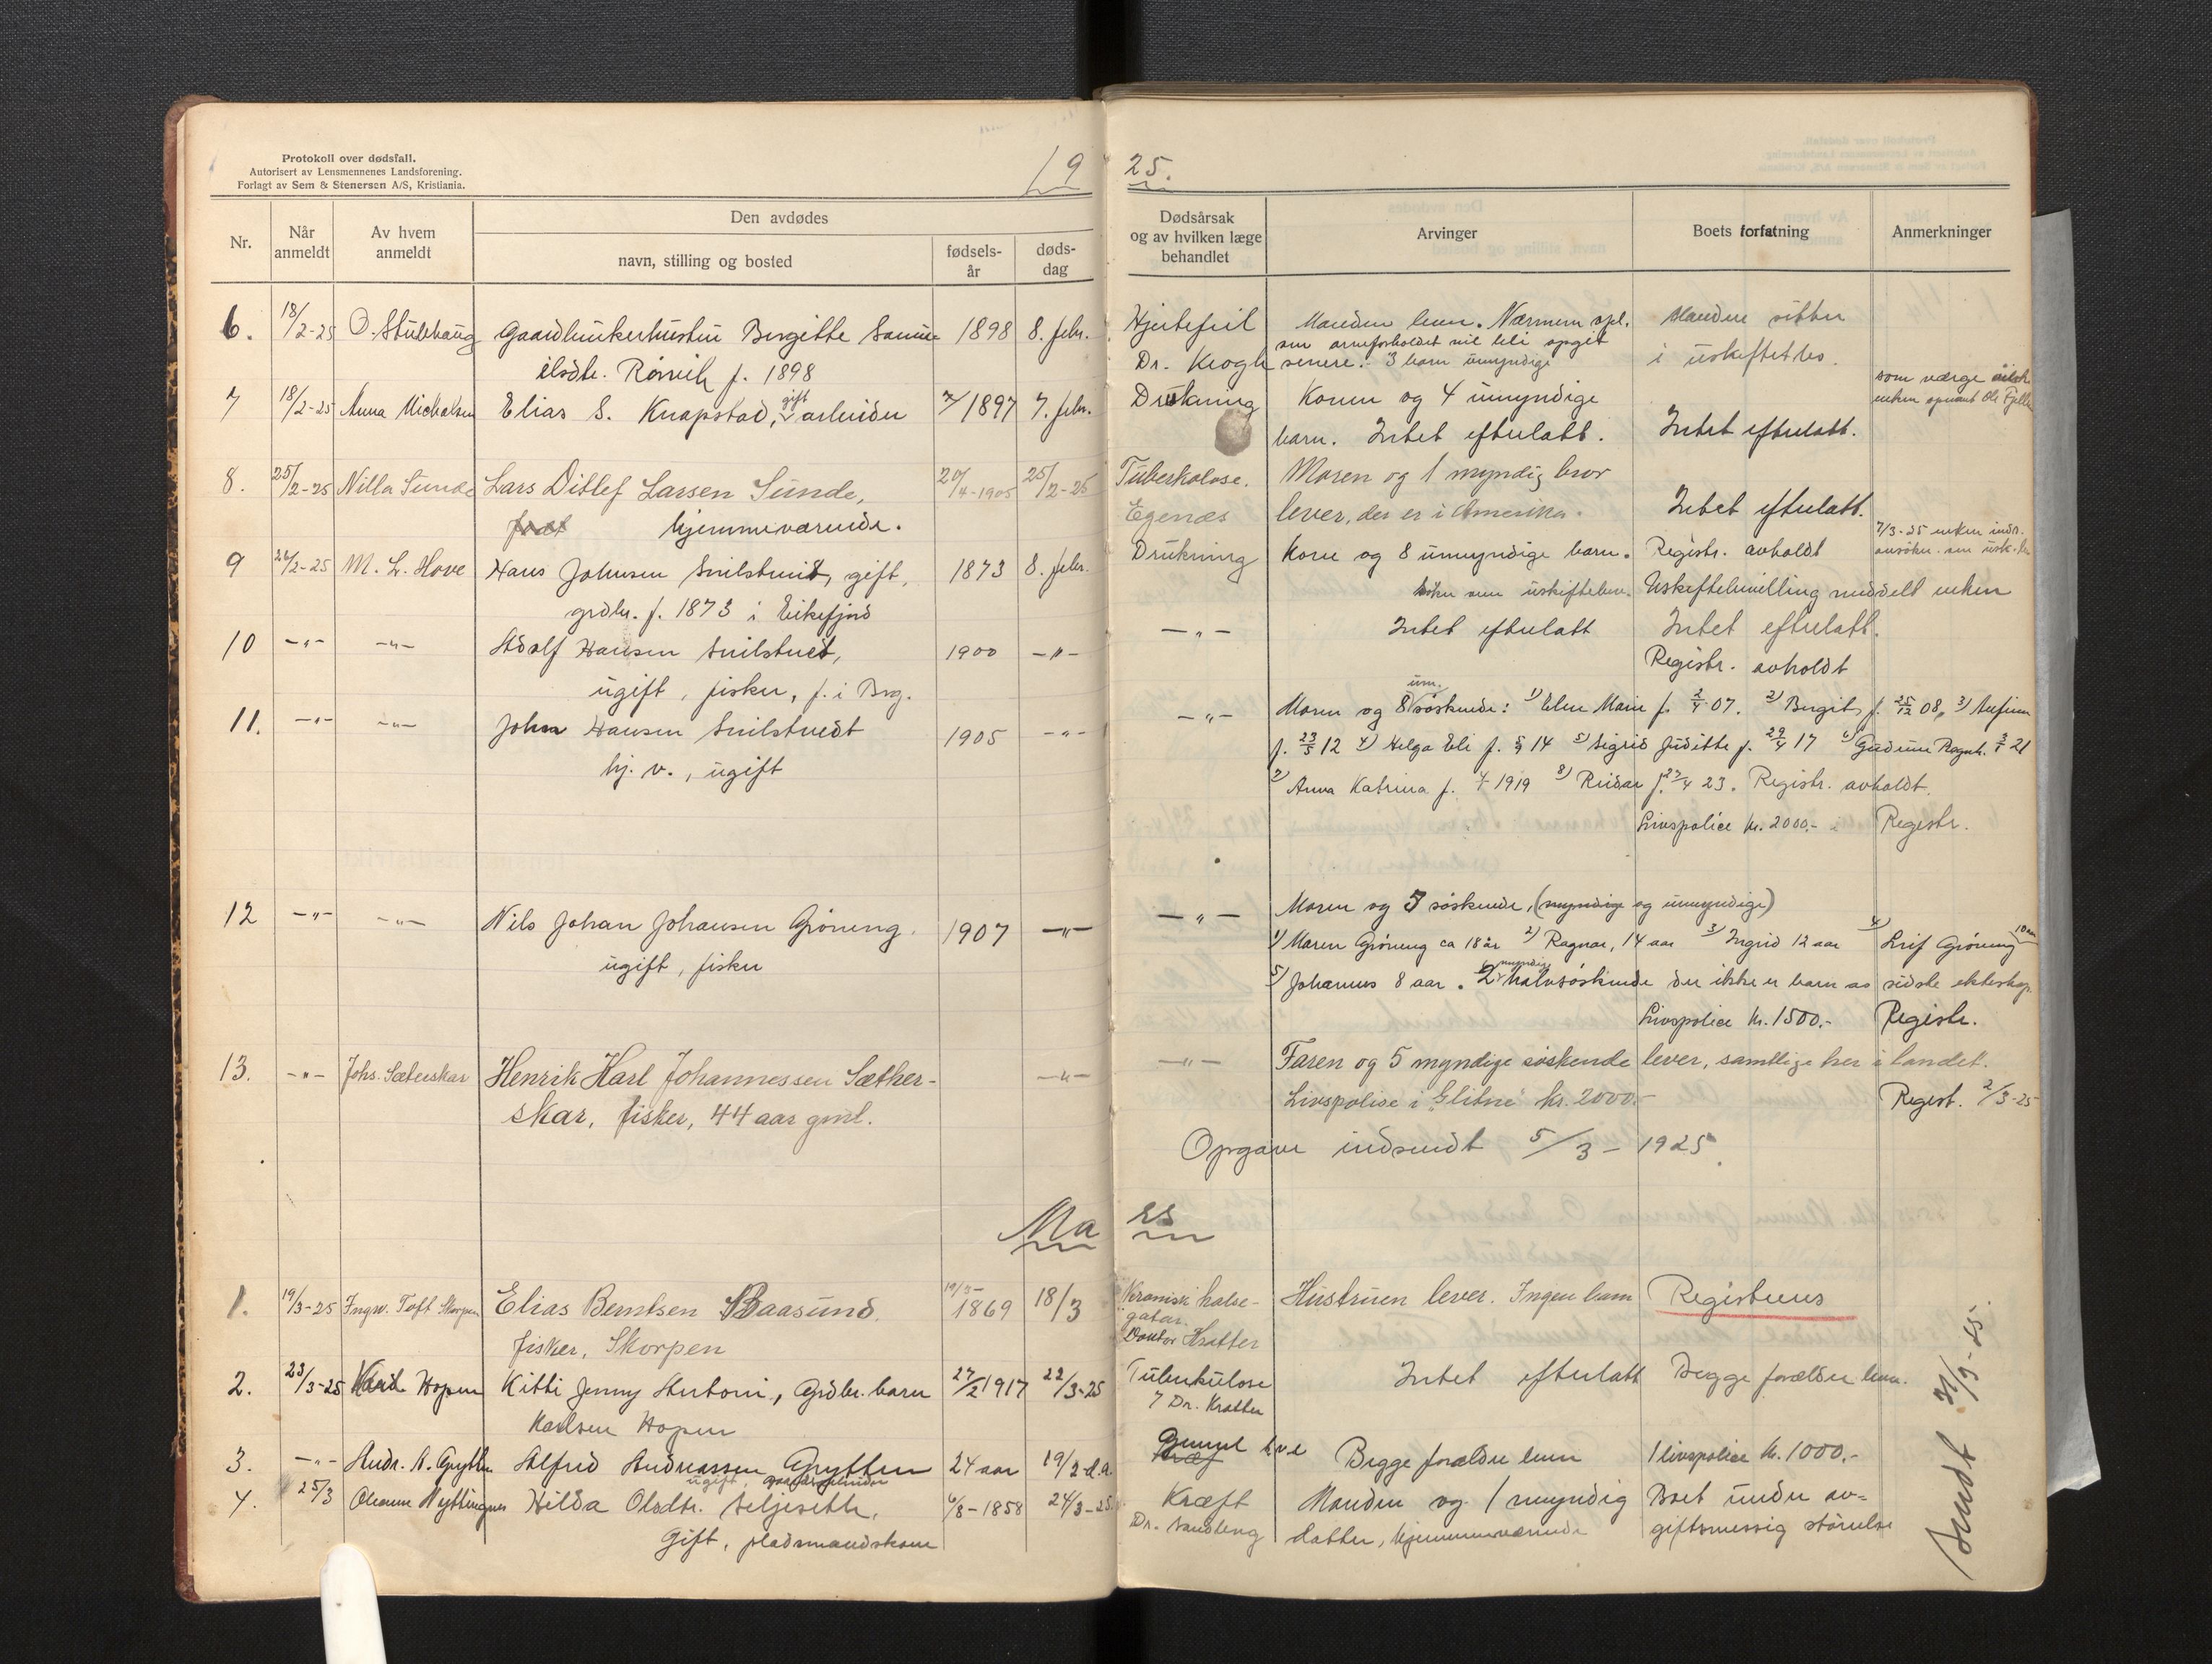 Protokoll over dødsfall.
Autorisert av Lensmennenes Landsforening.
Forlagt av Sem & Stenersen A/S, Kristiania.
19 25.
Nr.
Når anmeldt
Av hvem anmeldt
Den avdødes
navn, stilling og bosted
fødsels-år
døds-dag
Dødsårsak og av hvilken læge behandlet
Arvinger
Boets forfatning
Anmerkninger
6. 18/2-25 O. Stubhaug Gaardbrukerhustru Bergitte Samu- 1898 8. febr. Hjertefeil Manden lever. Nærmere opl. Manden sitter
elsdtr. Rørvik f. 1898 Dr. Krogh om arveforholdet vil bli opgit
senere. 3 barn umyndige i uskiftet bo.
7 18/2-25 Anna Michalsen Elias S. Knapstad, gift arbeider 1897 7. febr. Drukning Konen og 4 umyndige som værge
barn. Intet efterlatt. Intet efterlatt.
8. 25/2-25 Nilla Sunde Lars Ditlef Larsen Sunde, 20/4-1905 25/2-25 Tuberkolose. Moren og 1 myndig bror
hjemmeværende. Egenæs lever, der er i Amerika. Intet efterlatt.
9 26/2-25 M. L. Hove Hans Johnsen Snilstveit, gift, 1873 8. febr. Drukning Kone og 8 umyndige barn. Registr. avholdt 7/3-25 enken
grdbr. f. 1873 i Eikefjord søker om uskiftebev. Uskiftebevilling meddelt enken
10 -"- -"- Adolf Hansen Snilstvedt, 1900 -"- -"- Intet efterlatt Intet efterlatt.
ugift, fisker, f. i Brg. Registr. avholdt
11. -"- -"- John Hansen Snilstvedt 1905 -"- -"- Moren og 8 um. søskende: 1) Elen Marie f. 2/4 07. 2) Bergit f. 25/12 08, 3) Arfinn
hj. v., ugift f. 23/5 12 4) Helga Eli f. 14 5) Sigrid Juditte f. 29/4 17 6) Gudrun Ragnh. 21
7) Anna Katrina f. 1919 8) Reidar f. 27/4 23. Registr. avholdt.
Livspolice kr. 2000,- Registr.
12 -"- -"- Nils Johan Johansen Grøneng. 1907 -"- -"- Moren og 5 søskende, (myndige og umyndige)
ugift, fisker 1) Maren Grøneng ca 18 år 2) Ragnar, 14 aar 3) Ingrid 12 aar 4) Leif Grøneng 10 aar
5) Johannes 8 aar. 2 myndig halvsøskende der ikke er barn av sidste ekteskap.
Livspolice kr. 1500,- Registr.
13. -"- Johs. Sæterskar Henrik Karl Johannessen Sæther- -"- -"- Faren og 5 myndige søskende lever, samtlige her i landet.
skar, fisker, 44 aar gml. Livspolise i "Glitne" kr. 2000.- Regist. 2/3-25
Opgave indsendt 5/3 - 1925.
Mars
1. 19/3-25 Ingv. Toft Skorpen Elias Berntsen Baasund. 1869 18/3 Kronisk halse- Hustruen lever. Ingen barn Registreres
fisker, Skorpen gatar. Doktor Kratter
2. 23/3-25 Karl Hopen Kitti Jenny Antoni, Grdbr. barn 27/2 1917 22/3-25 Tuberkulose Intet efterlatt Begge forældre lever.
Karlsen Hopen Dr. Kratter
3. -"- Andr. A. Grytten Alfred Andreassen Grytten 24 aar 19/2 d.a. Begge forældre lever 1 livspolice kr. 1000.-
ugift, gaardsarbeider
4. 25/3 Hilda Olsdtr. Seljesette, 6/8-1858 24/3-25 Kræft Manden og 1 myndig Boet under av-
Gift, pladsmandskone Dr. Sandberg datter, hjemmeværende giftsmessig størrelse
Sendt 31/3-25.